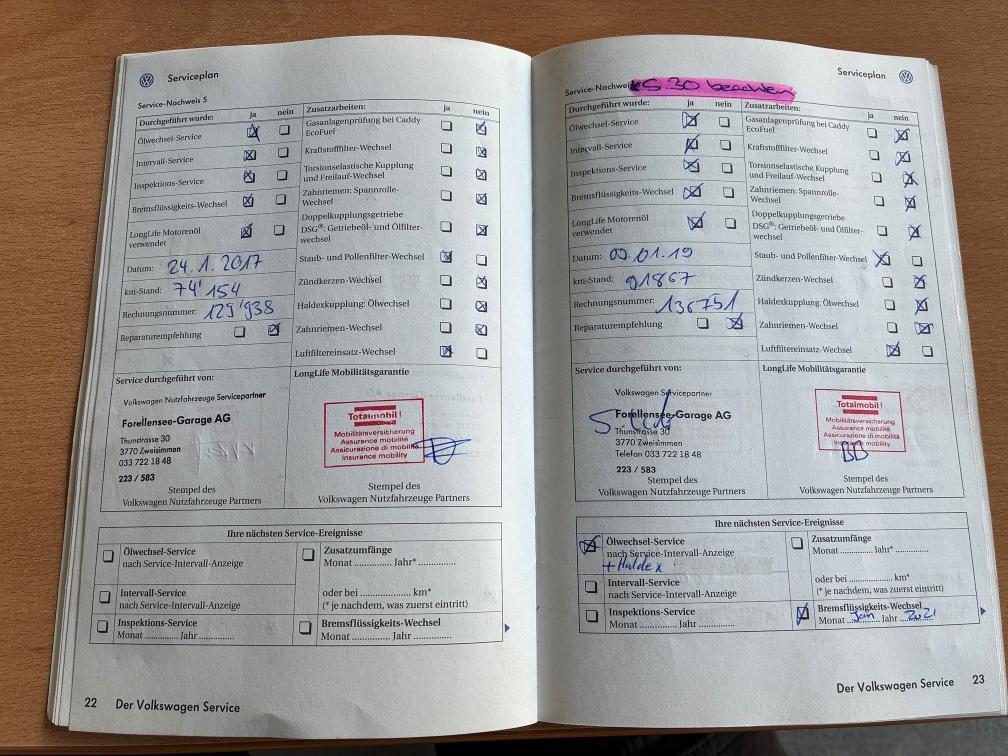 Serviceplan
Service-Nachweis 5
Durchgeführt wurde: ja nein
Ölwechsel-Service
Intervall-Service
Inspektions-Service
Bremsflüssigkeits-Wechsel
LongLife Motorenöl
verwendet
Datum: 24.1.2017
km-Stand: 74'154
Rechnungsnummer: 129'938
Reparaturempfehlung
Zusatzarbeiten: ja nein
Gasanlagenprüfung bei Caddy
EcoFuel
Kraftstofffilter-Wechsel
Torsionselastische Kupplung
und Freilauf-Wechsel
Zahnriemen: Spannrolle-
Wechsel
Doppelkupplungsgetriebe
DSG®: Getriebeöl- und Ölfilter-
wechsel
Staub- und Pollenfilter-Wechsel
Zündkerzen-Wechsel
Haldexkupplung: Ölwechsel
Zahnriemen-Wechsel
Luftfiltereinsatz-Wechsel
Service durchgeführt von:
Volkswagen Nutzfahrzeuge Servicepartner
Forellensee-Garage AG
Thunstrasse 30
3770 Zweisimmen
033 722 18 48
223 / 583
Stempel des
Volkswagen Nutzfahrzeuge Partners
LongLife Mobilitätsgarantie
Totalmobil!
Mobilitätsversicherung
Assurance mobilité
Assicurazione di mobilità
Insurance mobility
Stempel des
Volkswagen Nutzfahrzeuge Partners
Ihre nächsten Service-Ereignisse
Ölwechsel-Service
nach Service-Intervall-Anzeige
Intervall-Service
nach Service-Intervall-Anzeige
Inspektions-Service
Monat ............... Jahr ...............
Zusatzumfänge
Monat ............... Jahr* ...............
oder bei ..................... km*
(* je nachdem, was zuerst eintritt)
Bremsflüssigkeits-Wechsel
Monat ............... Jahr ...............
22 Der Volkswagen Service
Serviceplan
Service-Nachweis
S.30 beachten
Durchgeführt wurde: ja nein
Ölwechsel-Service
Intervall-Service
Inspektions-Service
Bremsflüssigkeits-Wechsel
LongLife Motorenöl
verwendet
Datum: 09.01.19
km-Stand: 91867
Rechnungsnummer: 136751
Reparaturempfehlung
Zusatzarbeiten: ja nein
Gasanlagenprüfung bei Caddy
EcoFuel
Kraftstofffilter-Wechsel
Torsionselastische Kupplung
und Freilauf-Wechsel
Zahnriemen: Spannrolle-
Wechsel
Doppelkupplungsgetriebe
DSG®: Getriebeöl- und Ölfilter-
wechsel
Staub- und Pollenfilter-Wechsel
Zündkerzen-Wechsel
Haldexkupplung: Ölwechsel
Zahnriemen-Wechsel
Luftfiltereinsatz-Wechsel
Service durchgeführt von:
Volkswagen Servicepartner
Forellensee-Garage AG
Thunstrasse 30
3770 Zweisimmen
Telefon 033 722 18 48
223 / 583
Stempel des
Volkswagen Nutzfahrzeuge Partners
LongLife Mobilitätsgarantie
Totalmobil!
Mobilitätsversicherung
Assurance mobilité
Assicurazione di mobilità
Insurance mobility
Stempel des
Volkswagen Nutzfahrzeuge Partners
Ihre nächsten Service-Ereignisse
Ölwechsel-Service
nach Service-Intervall-Anzeige
+ Haldex
Intervall-Service
nach Service-Intervall-Anzeige
Inspektions-Service
Monat ............... Jahr ...............
Zusatzumfänge
Monat ............... Jahr* ...............
oder bei ..................... km*
(* je nachdem, was zuerst eintritt)
Bremsflüssigkeits-Wechsel
Monat Jan Jahr 2021
Der Volkswagen Service 23